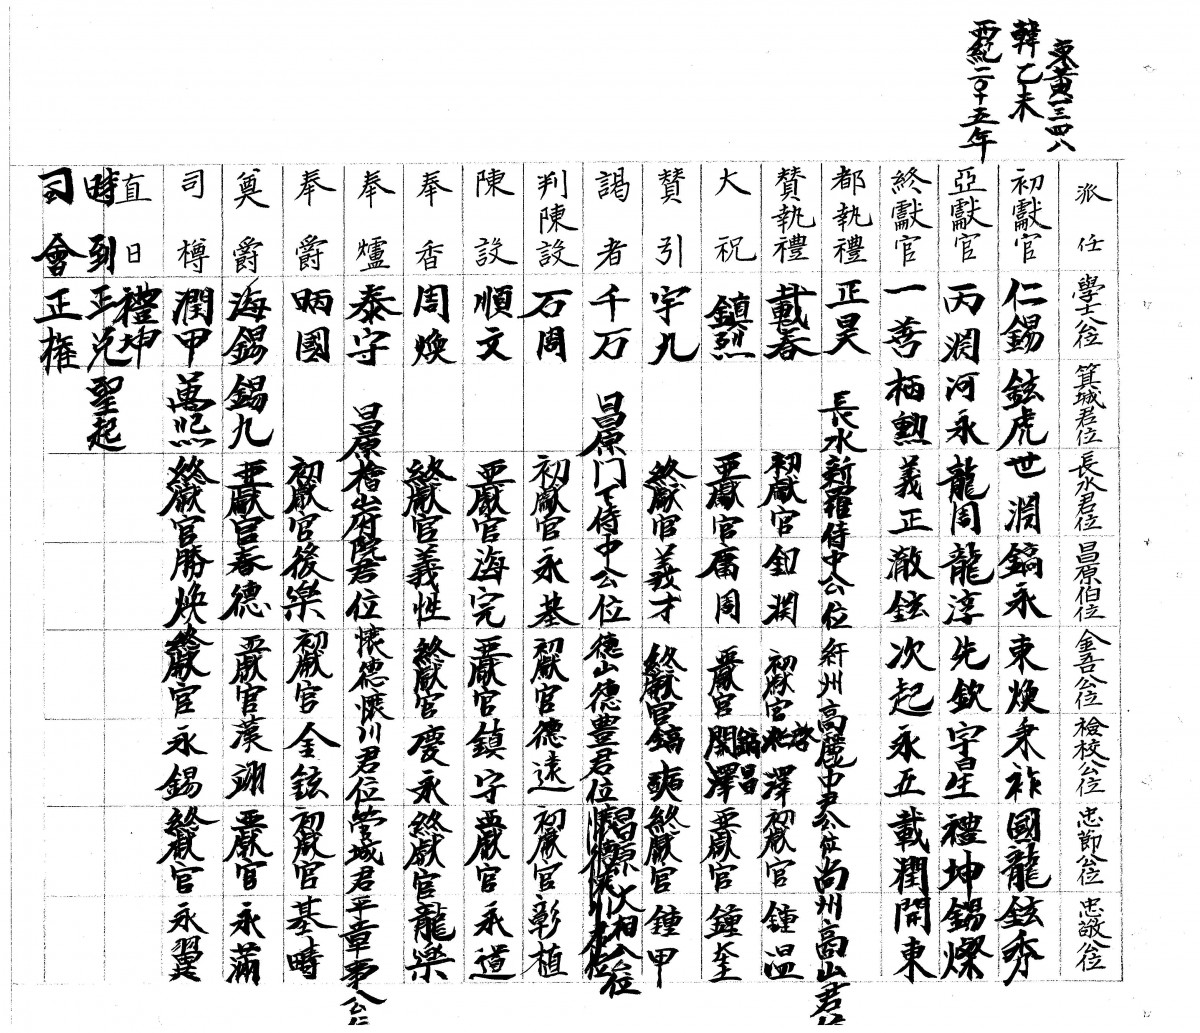 東黃一三四八
韓乙未
西紀二〇十五年
派任 學士公位 箕城君位 長水君位 昌原伯位 金吾公位 檢校公位 忠節公位 忠敬公位
初獻官 仁錫 鉉虎 世淵 鎬永 東煥 秉祚 國龍 鉉秀
亞獻官 丙淵 河永 龍周 龍淳 先欽 宇昌 禮坤 錫燦
終獻官 一善 柄勳 義正 澈鉉 次起 永五 載潤 開東
都執禮 正昊 長水 新羅侍中公位 高麗中尹公位 尙州高山君位
贊執禮 載春 初獻官 釦潤 初獻官 澤 初獻官 鍾温
大祝 鎭烈 亞獻官 周 亞獻官 澤 亞獻官 鍾奎
贊引 宇九 終獻官 義才 終獻官 鎬 終獻官 鍾甲
謁者 千石 昌原門下侍中公位 德山德豊君位 昌原大相公位
判陳設 石周 初獻官 永基 初獻官 德遠 初獻官 彰植
陳設 順文 亞獻官 海完 亞獻官 鎭守 亞獻官 永道
奉香 周煥 終獻官 義性 終獻官 慶永 終獻官 龍樂
奉爐 泰守 昌原檜山府院君位 懷德懷川君位 管城君平章事公位
奉爵 昞國 初獻官 後樂 初獻官 金鉉 初獻官 基疇
奠爵 海錫 錫九 亞獻官 春德 亞獻官 漢翊 亞獻官 永滿
司樽 潤甲 萬熙 終獻官 勝煥 終獻官 永錫 終獻官 永翼
直日 禮坤
時到 正兌 聖起
司會 正權